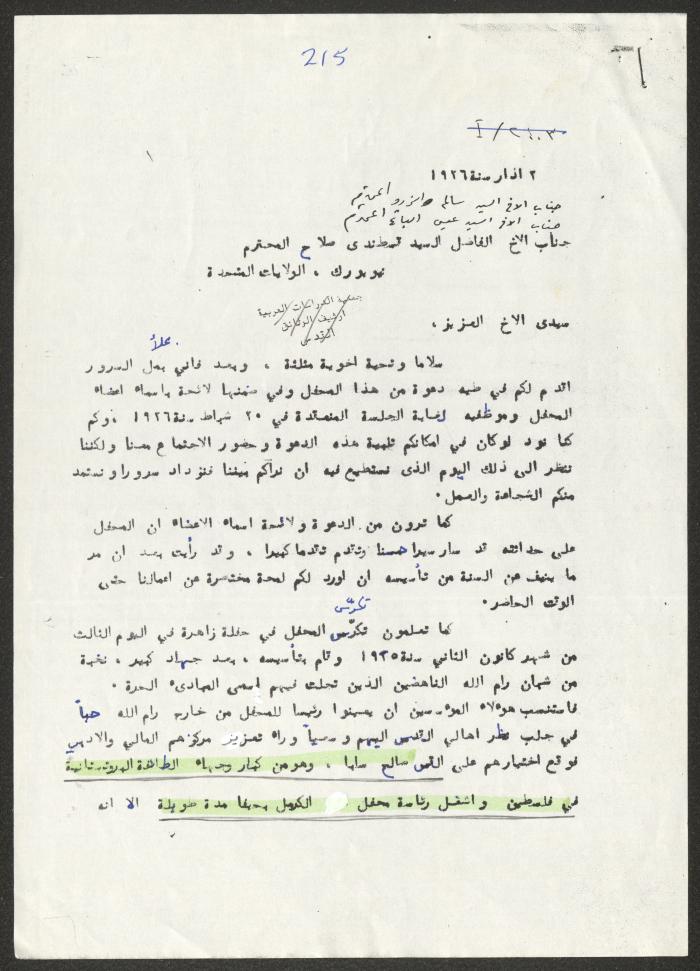 215
٢١٠٣/I
٢ اذار سنة ١٩٢٦
جناب الاخ السيد سالم الزرو المحترم
جناب الاخ السيد عيسى المحترم
جناب الاخ الفاضل السيد قسطندى صلاح المحترم
نيويورك ، الولايات المتحدة
جمعية الدراسات العربية
ارشيف الوثائق
القدس
سيدى الاخ العزيز ،
علاً
سلاما وتحية اخوية مثلثة ، وبعد فاني بمل السرور
اقدم لكم في طيه دعوة من هذا المحفل وفي ضمنها لائحة باسماء اعضاء
المحفل وموظفيه لغاية الجلسة المنعقدة في ٢٥ شباط سنة ١٩٢٦ ،وكم
كنا نود لو كان في امكانكم تلبية هذه الدعوة وحضور الاجتماع معنا ولكننا
ننظر الى ذلك اليوم الذى نستطيع فيه ان نراكم بيننا فنزداد سرورا ونستمد
منكم الشجاعة والعمل٠
كما ترون من الدعوة ولائحة اسماء الاعضاء ان المحفل
على حداثته قد سار سيرا حسنا وتقدم تقدما كبيرا ، وقد رأيت بعد ان مر
ما ينيف عن السنة من تأسيسه ان اورد لكم لمحة مختصرة عن اعمالنا حتى
الوقت الحاضر٠
تكرّس
كما تعلمون تكرّس المحفل في حفلة زاهرة في اليوم الثالث
من شهر كانون الثاني سنة ١٩٢٥ وقام بتأسيسه ، بعد جهاد كبير ، نخبة
من شبان رام الله الناهضين الذين تجلت فيهم اسمى المبادىء الحرة ٠
فاستنسب هولاء الموسسين ان يعينوا رئيسا للمحفل من خارج رام الله حباً
في جلب نظر اهالي القدس اليهم وسعياً وراء تعزيز مركزهم المالي والادبي
فوقع اختيارهم على القس صالح سابا ، وهو من كبار وجهاء الطائفة البروتستانتية
في فلسطين واشغل رئاسة محفل الكرمل بحيفا مدة طويلة الا انه